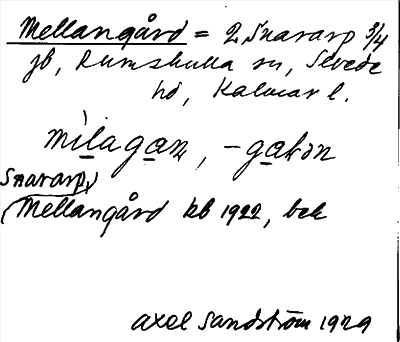 Mellangård = 2 Snararp 3/4
jb, Rumskulla sn, Sevede
hd, Kalmar l.
mìlagan, -gakɘn
Snararp,
Mellangård kb 1922, bek
Axel Sandström 1929